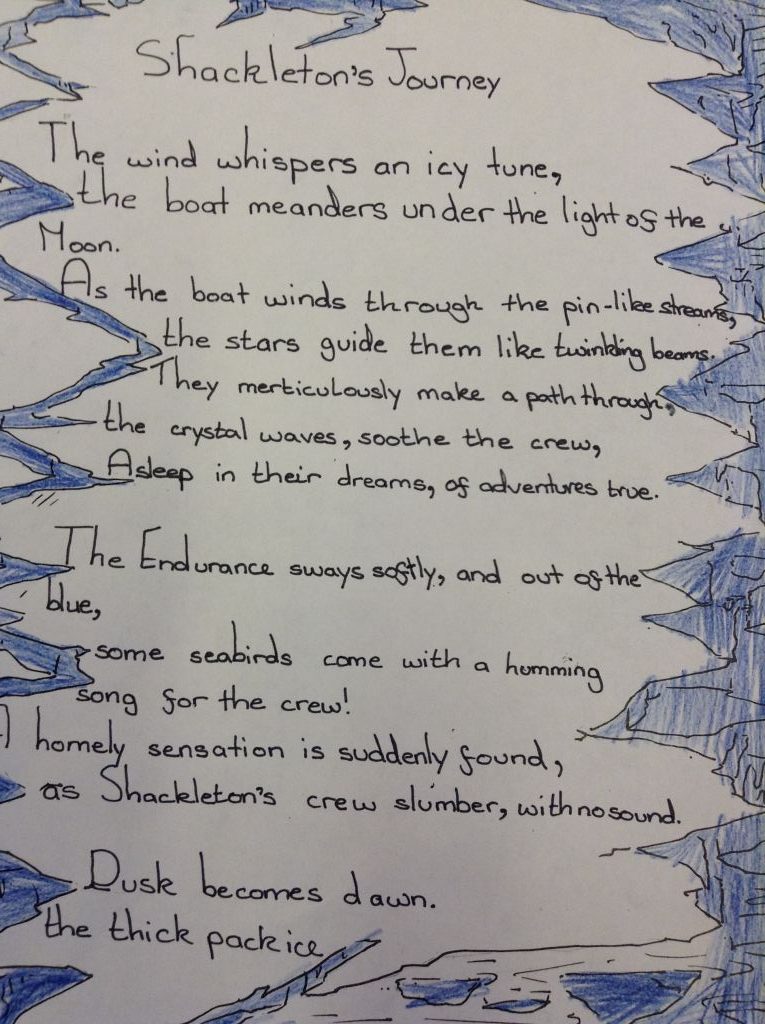 Shackleton's Journey
The wind whispers an icy tune,
the boat meanders under the light of the
Moon.
As the boat winds through the pin-like streams,
the stars guide them like twinkling beams.
They merticulously make a path through,
the crystal waves, soothe the crew,
Asleep in their dreams, of adventures true.
The Endurance sways softly, and out of the
blue,
some seabirds come with a humming
song for the crew!
A homely sensation is suddenly found,
as Shackleton's crew slumber, with no sound.
Dusk becomes dawn.
the thick pack ice